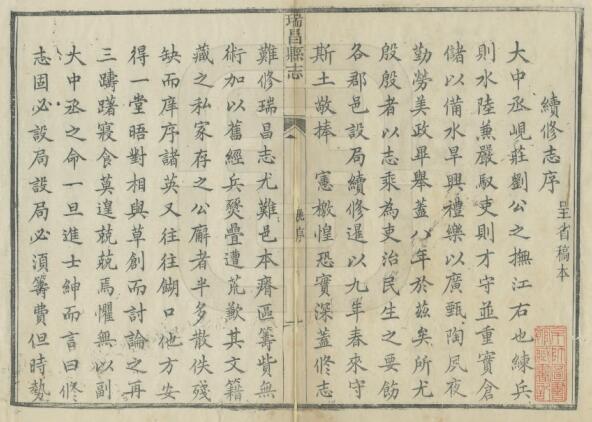 續修志序
呈省稿本
大中丞峴莊劉公之撫江右也練兵
則水陸兼嚴馭吏則才守並重實倉
儲以備水旱興禮樂以廣甄陶夙夜
勤勞美政畢舉蓋八年於茲矣所尤
殷殷者以志乘為吏治民生之要飭
各郡邑設局續修暹以九年春來守
斯土敬捧 憲檄惶恐實深蓋修志
難修瑞昌志尤難邑本瘠區籌貲無
術加以舊經兵燹疊遭荒歉其文籍
藏之私家存之公廨者半多散佚殘
缺而庠序諸英又往往餬口他方安
得一堂晤對相與草創而討論之再
三躊躇寢食莫遑兢兢焉懼無以副
大中丞之命一旦進士紳而言曰修
志固必設局設局必須籌費但時勢
瑞昌縣志
序
一